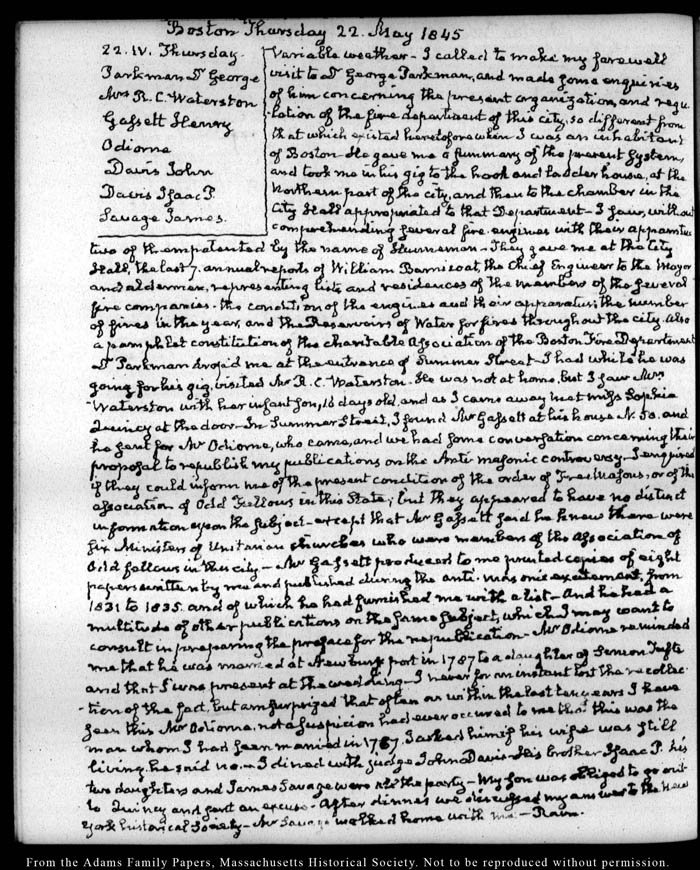 Boston Thursday 22. May 1845
22. IV. Thursday.
Parkman Dr George
Mrs R. C. Waterston
Gassett Henry
Odiorne
Davis John
Davis Isaac P.
Savage James.
Variable weather - I called to make my farewell
visit to Dr George Parkman, and made some enquiries
of him concerning the present organization, and regu-
-lation of the fire department of this city, so different from
that which existed heretofore when I was an inhabitant
of Boston. He gave me a summary of the present System,
and took me in his gig to the hook and Ladder house, at the
Northern part of the city, and then to the chamber in the
City Hall appropriated to that Department - I saw, without
comprehending several fire engines with their apparatus
two of them patented by the name of Hunneman - They gave me at the City
Hall, the last 7. annual reports of William Barnicoat, the Chief Engineer to the Mayor
and alderman, representing lists and residences of the members of the several
fire companies. the condition of the engines and their apparatus; the number
of fires in the year, and the Reservoirs of Water for fires throughout the city. Also
a pamphlet constitution of the charitable Association of the Boston Fire Department
Dr Parkman dropt me at the entrance of Summer Street - I had while he was
going for his gig, visited Mr R. C. Waterston. He was not at home, but I saw Mrs
Waterston with her infant son, 16 days old, and as I came away met Miss Sophia
Quincy at the door - In Summer Street, I found Mr Gassett at his house N. 50. and
he sent for Mr Odiorne, who came, and we had some conversation concerning their
proposal to republish my publications on the Anti-masonic controversy - I enquired
if they could inform me of the present condition of the order of Free Masons, or of the
association of Odd Fellows in this State; but they appeared to have no distinct
information upon the subject - except that Mr Gassett said he knew there were
six Ministers of Unitarian churches who were members of the Association of
Odd fellows in this city - Mr Gassett produced to me printed copies of eight
papers written by me and published during the anti-masonic excitement, from
1831 to 1835. and of which he had furnished me with a list - And he had a
multitude of other publications on the same subject, which I may want to
consult in preparing the preface for the republication - Mr Odiorne reminded
me that he was married at Newburyport in 1787 to a daughter of Simon Tufts
and that I was present at the wedding - I never for an instant lost the recollec-
-tion of the fact, but am surprized that often as within the last ten years I have
seen this Mr Odiorne, not a suspicion had ever occured to me that this was the
man whom I had seen married in 1787. I asked him if his wife was still
living, he said no. - I dined with judge John Davis - His brother Isaac P. his
two daughters and James Savage were all the party - My son was obliged to go out
to Quincy and sent an excuse. After dinner we discussed my answer to the New
York historical Society - Mr Savage walked home with me - Rain.
From the Adams Family Papers, Massachusetts Historical Society. Not to be reproduced without permission.